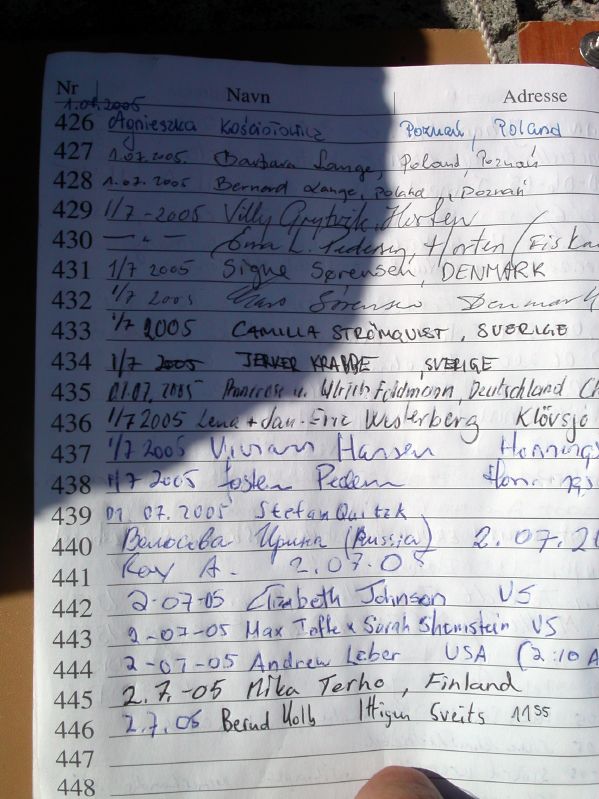 Nr Navn Adresse
1.07.2005
426 Agnieszka Kościołowicz Poznań, Poland
427 1.07.2005. Barbara Lange, Poland, Poznań
428 1.07.2005 Bernard Lange, Poland, Poznań
429 1/7-2005 Villy Horten
430 — " — L. Pedersen, Horten
431 1/7 2005 Signe Sørensen, DENMARK
432 1/7 2005 Sørensen Denmark
433 1/7 2005 CAMILLA STRÖMQUIST, SVERIGE
434 1/7 2005 JERKER KRABBE SVERIGE
435 01.07.2005 u. Ulrich Feldmann, Deutschland
436 1/7 2005 Lena + Jan-Eric Westerberg Klövsjö
437 1/7 2005 Vivian Hansen Honnings
438 1/7 2005 Pedersen
439 01.07.2005 Stefan Quitzk
440 Ирина (Russia) 2.07.20
441 Roy A. 2.07.05
442 2-07-05 Elizabeth Johnson US
443 2-07-05 Max Tofte & Sarah Shernstein US
444 2-07-05 Andrew Leber USA (2:10 A
445 2.7.-05 Mika Terho, Finland
446 2.7.05 Bernd Kolb Ittigen Sveits 11 55
447
448